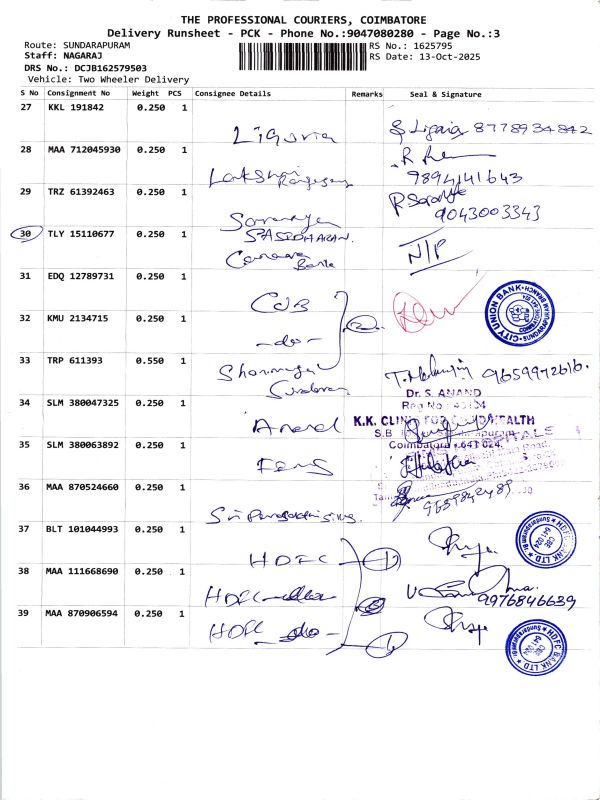 THE PROFESSIONAL COURIERS, COIMBATORE
Delivery Runsheet - PCK - Phone No.:9047080280 - Page No.:3
Route: SUNDARAPURAM
RS No.: 1625795
Staff: NAGARAJ
RS Date: 13-Oct-2025
DRS No.: DCJB162579503
Vehicle: Two Wheeler Delivery
S No Consignment No Weight PCS Consignee Details Remarks Seal & Signature
27 KKL 191842 0.250 1
Liguria 8778934842
28 MAA 712045930 0.250 1
Lakshmi
9894141643
29 TRZ 61392463 0.250 1
Saranya 9043003343
30 TLY 15110677 0.250 1
SASIDHARAN
Canara Bank N/P
31 EDQ 12789731 0.250 1
CUB
CITY UNION BANK
32 KMU 2134715 0.250 1
-do-
33 TRP 611393 0.550 1
Shanmuga
Sundaram 9659972616.
Dr. S. ANAND
34 SLM 380047325 0.250 1
Anand
K.K. CLINIC FOR HEALTH
S.B
Coimbatore - 641 024.
35 SLM 380063892 0.250 1
36 MAA 870524660 0.250 1
9659842489
37 BLT 101044993 0.250 1
HDFC 1
HDFC BANK LTD
38 MAA 111668690 0.250 1
HDFC
9976846639
39 MAA 870906594 0.250 1
HDFC -do- 1
HDFC BANK LTD